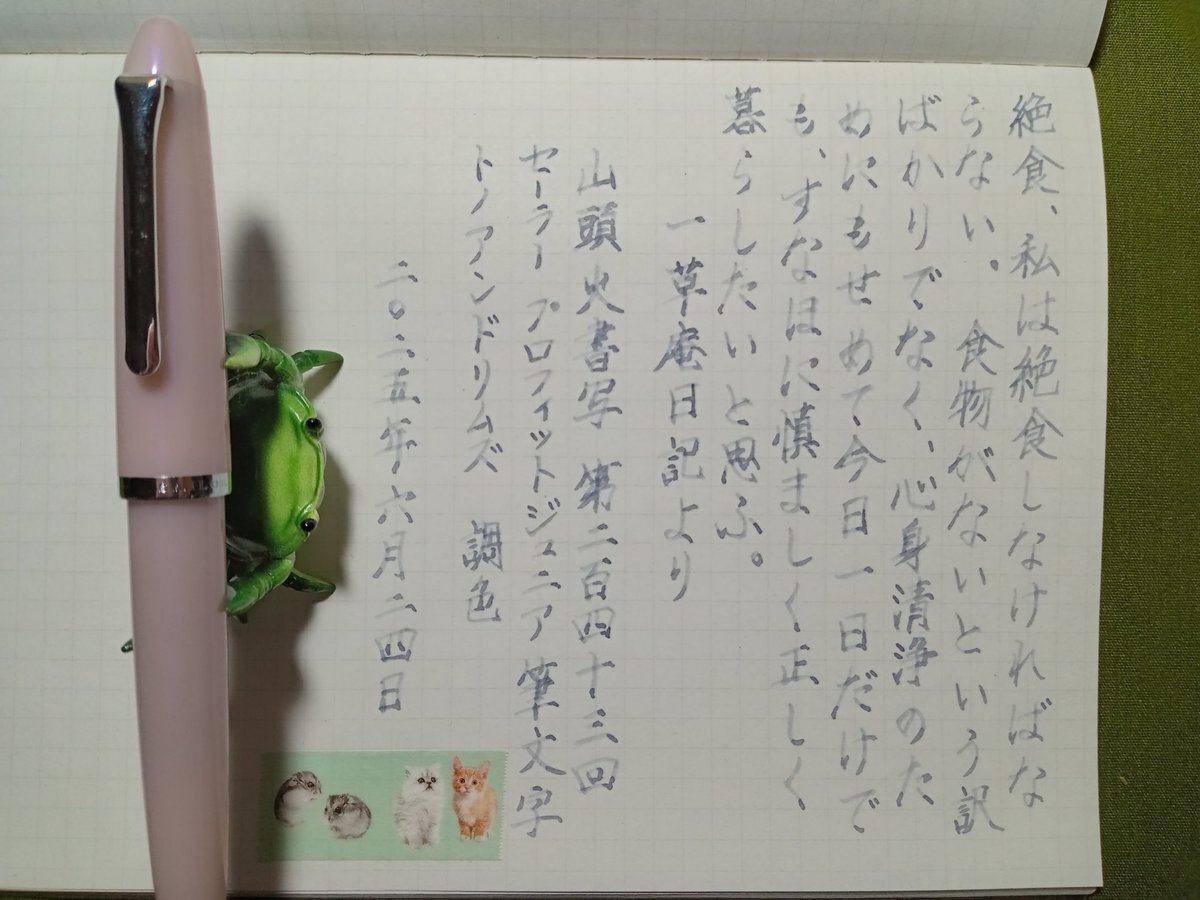 絶食、私は絶食しなければな
らない。食物がないという訳
ばかりでなく、心身清浄のた
めにもせめて今日一日だけで
も、すなほに慎ましく正しく
暮らしたいと思ふ。
一草庵日記より
山頭火書写 第二百四十三回
セーラー プロフィットジュニア 筆文字
トノアンドリムズ 調色
二〇二五年六月二四日